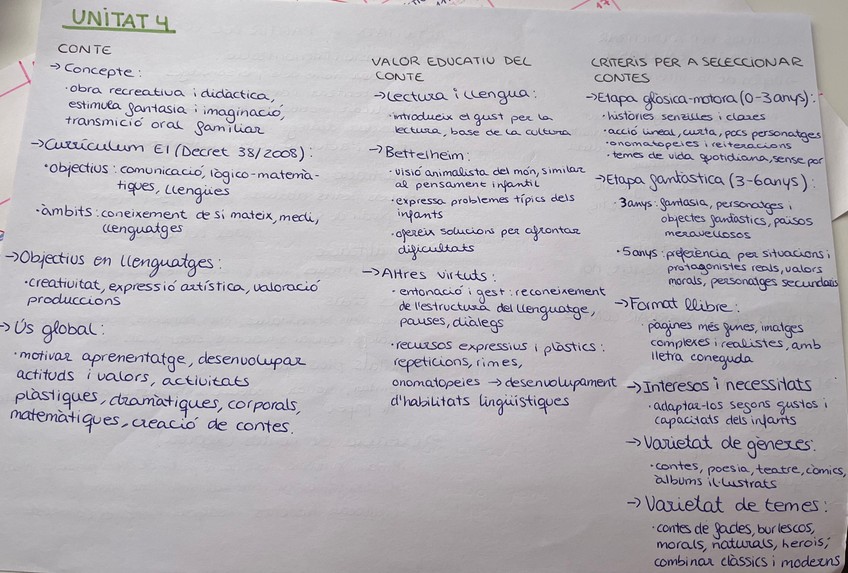 UNITAT 4
CONTE
→ Concepte:
· obra recreativa i didàctica,
estimula fantasia i imaginació,
transmició oral familiar
→ Currículum EI (Decret 38/2008):
· objectius: comunicació, lògico-matemà-
tiques, llengües
· àmbits: coneixement de si mateix, medi,
llenguatges
→ Objectius en llenguatges:
· creativitat, expressió artística, valoració
produccions
→ Ús global:
· motivar aprenentatge, desenvolupar
actituds i valors, activitats
plàstiques, dramàtiques, corporals,
matemàtiques, creació de contes.
VALOR EDUCATIU DEL
CONTE
→ Lectura i llengua:
· introdueix el gust per la
lectura, base de la cultura
→ Bettelheim:
· visió animalista del món, similar
al pensament infantil
· expressa problemes típics dels
infants
· ofereix solucions per afrontar
dificultats
→ Altres virtuts:
· entonació i gest: reconeixement
de l'estructura del llenguatge,
pauses, diàlegs
· recursos expressius i plàstics:
repeticions, rimes,
onomatopeies → desenvolupament
d'habilitats lingüístiques
CRITERIS PER A SELECCIONAR
CONTES
→ Etapa glòsica-motora (0-3anys):
· històries senzilles i clares
· acció lineal, curta, pocs personatges
· onomatopeies i reiteracions
· temes de vida quotidiana, sense por
→ Etapa fantàstica (3-6anys):
· 3anys: fantasia, personatges i
objectes fantàstics, països
meravellosos
· 5anys: preferència per situacions i
protagonistes reals, valors
morals, personatges secundaris
→ Format llibre:
· pàgines més fines, imatges
complexes i realistes, amb
lletra coneguda
→ Interesos i necessitats
· adaptar-los segons gustos i
capacitats dels infants
→ Varietat de gèneres:
· contes, poesia, teatre, còmics,
àlbums il·lustrats
→ Varietat de temes:
· contes de fades, burlescos,
morals, naturals, herois;
combinar clàssics i moderns